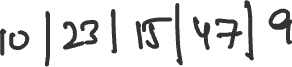 10 | 23 | 15 | 47 | 9